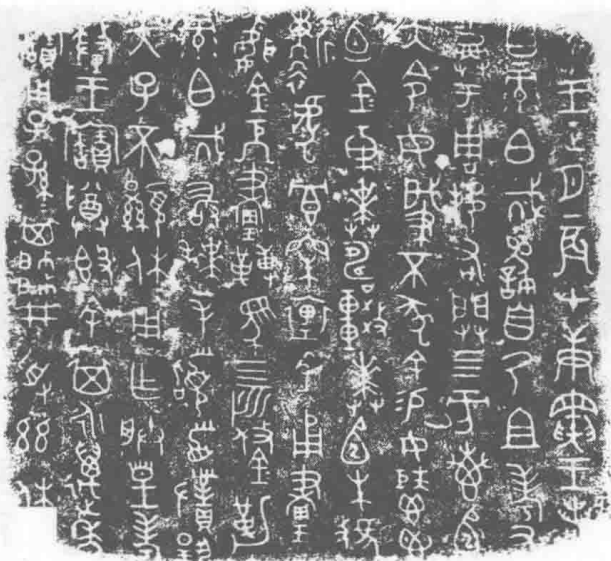 王正月辰才庚寅王若
曰彔白𢦚繇自乃且考又
于周邦右闢四方叀
天令女肇不墜余易女
卣金車𠦪較𠦪朱虢
虎冟裏金甬畫
金厄畫轉馬四匹鋚勒
白𢦚敢拜手稽首對揚
天子不顯休用乍朕皇考
釐王寶尊簋余其永萬年寶
用子子孫孫其帥井受茲休